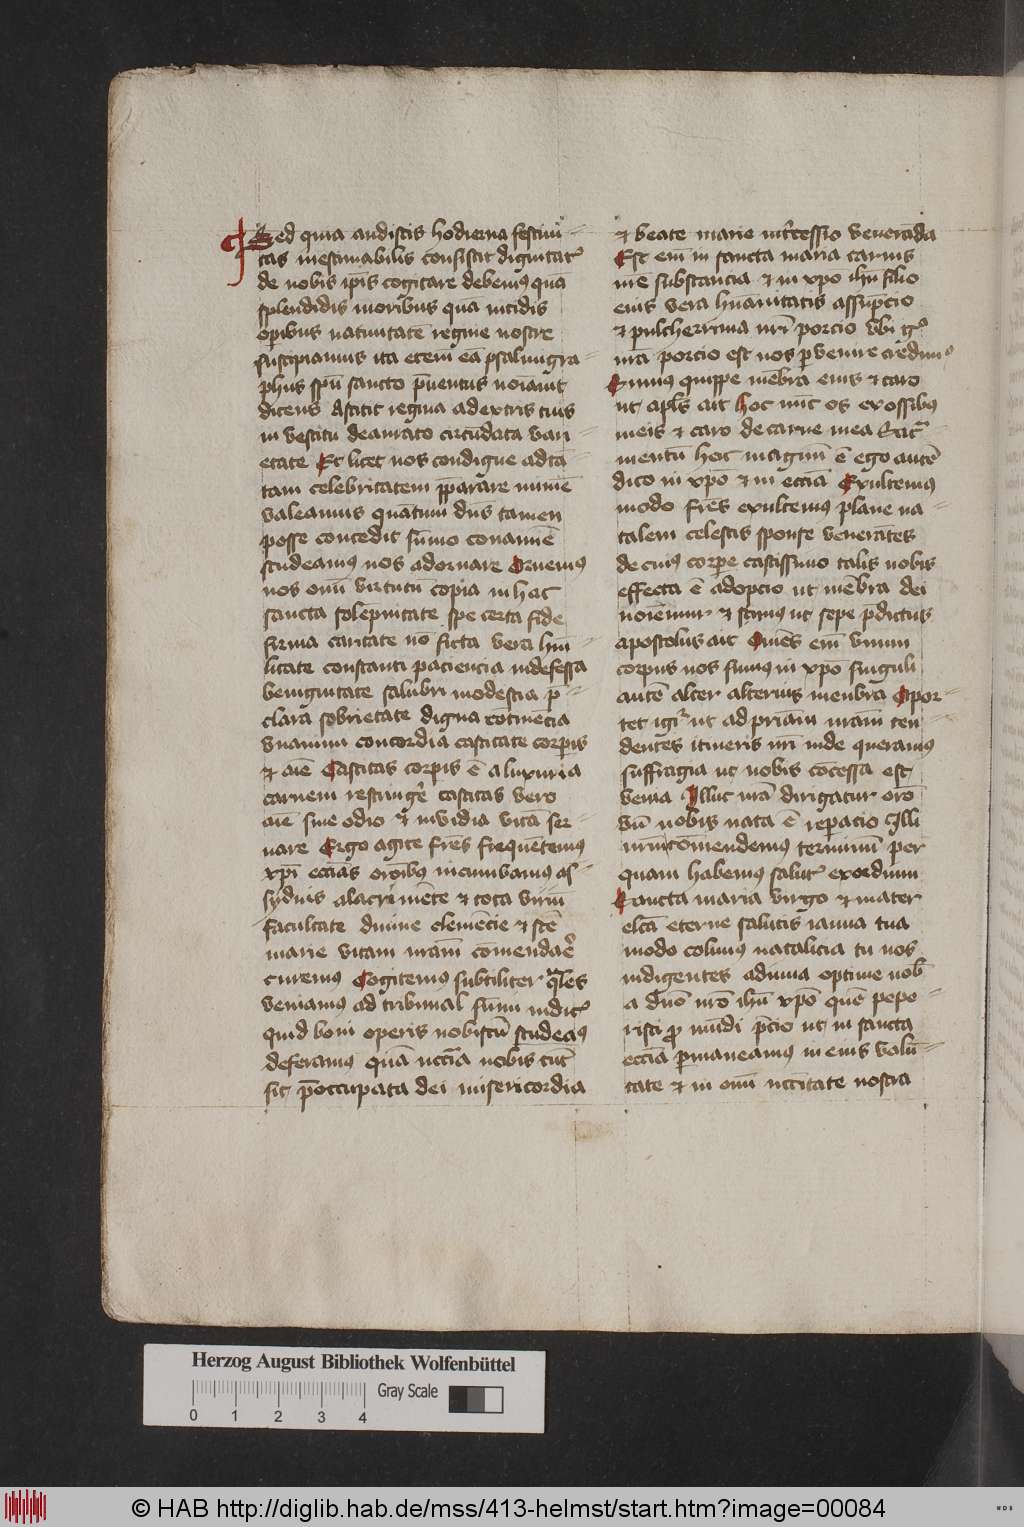 Sed quia audistis hodierna festiui-
tas inestimabilis consistit dignitat
de nobis ip̄is cogitare debemꝰ quā
splendidis moribus quā nitidis
oꝑibus natiuitatē regine nostre
suscipiamus ita etem ea psalmigra-
phus spū sancto p̄uentus noīauit
dicens Astitit regina a dextris tuis
in vestitu deaurato circūdata vari-
etate Et licet nos condigne ad tā-
tam celebritatem p̄parare nimīe
valeamus quantum dn̄s tamen
posse concedit sūmo conamīe
studeamꝰ nos adornare Ornemꝰ
nos om̄i virtutū copia in hac
sancta solēpnitate spe certa fide
firma caritate nō ficta vera hūi-
litate constanti paciencia indefessa
benignitate salubri modestia p̄-
clara sobrietate digna cōtinēcia
vnanimi concordia castitate corꝑis
et aīe Castitas corꝑis ē a luxuria
carnem restringe᷑ castitas vero
aīe sine odio et inuidia vitā ser-
uare Ergo agite frēs frequētemꝰ
xp̄i eccīas orōibꝰ incumbamus as-
syduis alacri mēte et tota viriū
facultate diuine clemēcie et scē
marie vitam nr̄am cōmendare
curemꝰ Cogitemꝰ subtiliter q̄les
veniamꝰ ad tribunal sūmi iudicꝭ
quid boni operis nobiscū studeatꝰ
deferamus quā nc̄cīa nobis tūc
sit p̄occupata dei misericordia
et beate marie int̄cessio veneranda
Est em̄ in sancta maria carnis
nr̄e substancia et in xp̄o ihū filio
eius vera hūanitatis assūpcio
et pulcherrima nr̄i porcio vbi igꝰ
nr̄a porcio est nos ꝑvenire credimꝰ
Sumus quippe mēbra eius et caro
ut apl̄s ait hoc nūc os ex ossibꝰ
meis et caro de carne mea Sacr̄-
mentū hoc magnū ē ego autē
dico in xp̄o et in eccīa Exultemꝰ
modo frēs exultemꝰ plane na-
talem celestis sponse venerātes
de cuiꝰ corꝑe castissimo talis nobis
effecta ē adopcio ut mēbra dei
noīemur et simꝰ ut sepe p̄dictus
apostolus ait Om̄es em̄ vnum
corpus nos sumꝰ in xp̄o singuli
autē alter alterius menbra Opor-
tet igiꝰ ut ad pr̄iam nr̄am ten-
dentes itineris nr̄i inde queramꝰ
suffragia ut nobis cōcessa est
venia Illuc nr̄a dirigatur orō
vn̄ nobis nata ē reꝑacio Illi
nr̄m cōmendemus terminū per
quam habemꝰ salutꝭ exordium
Sancta maria virgo et mater
elc̄a eterne salutis ianua tua
modo colimꝰ natalicia tu nos
indigentes adiuua optime nob̄
a dn̄o nr̄o ihū xp̄o quē pepe-
risti ꝓ mūdi p̄cio ut in sancta
eccīa ꝑmaneamꝰ in eius volū-
tate et in om̄i nc̄citate nostra
Herzog August Bibliothek Wolfenbüttel
0 1 2 3 4 Gray Scale
© HAB http://diglib.hab.de/mss/413-helmst/start.htm?image=00084